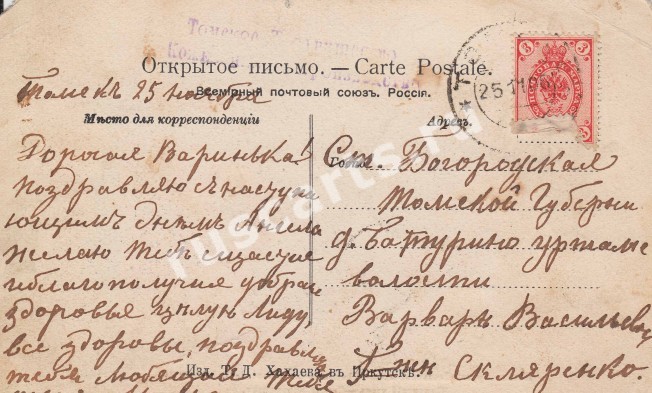 Томское
Открытое письмо. — Carte Postale.
Всемірный почтовый союзъ. Россія.
Томскъ 25 ноября
Мѣсто для корреспонденціи
Адресъ.
3
25 11
Дорогая Варинька!
поздравляю с наступи
ющимъ днемъ Ангела
желаю тебѣ щастие
и благополучия добраго
здоровья цѣлую Лиду
все здоровы, поздравля
тебя любящая
Ст. Богородская
Томской Губернии
д. Батурино
волости
Варварѣ Васильев
Г-жи Скляренко.
Изд. Т. Д. Хахаева въ Иркутскѣ.
ruscarts.ru